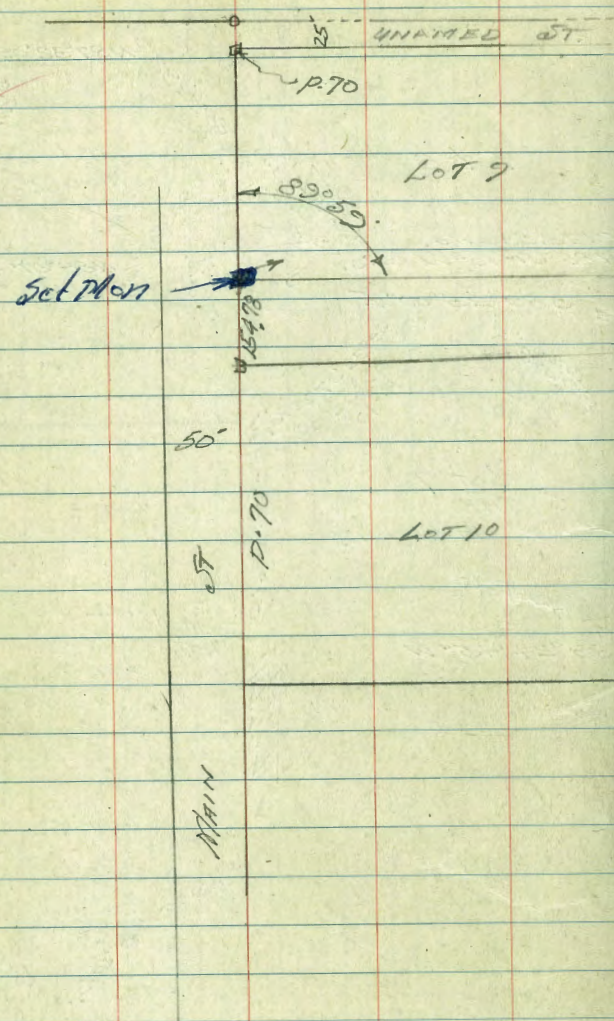 25'
UNAMED ST.
P.70
LOT 9
89°59'
Set Mon
154.78
50'
P.70
LOT 10
MAIN ST